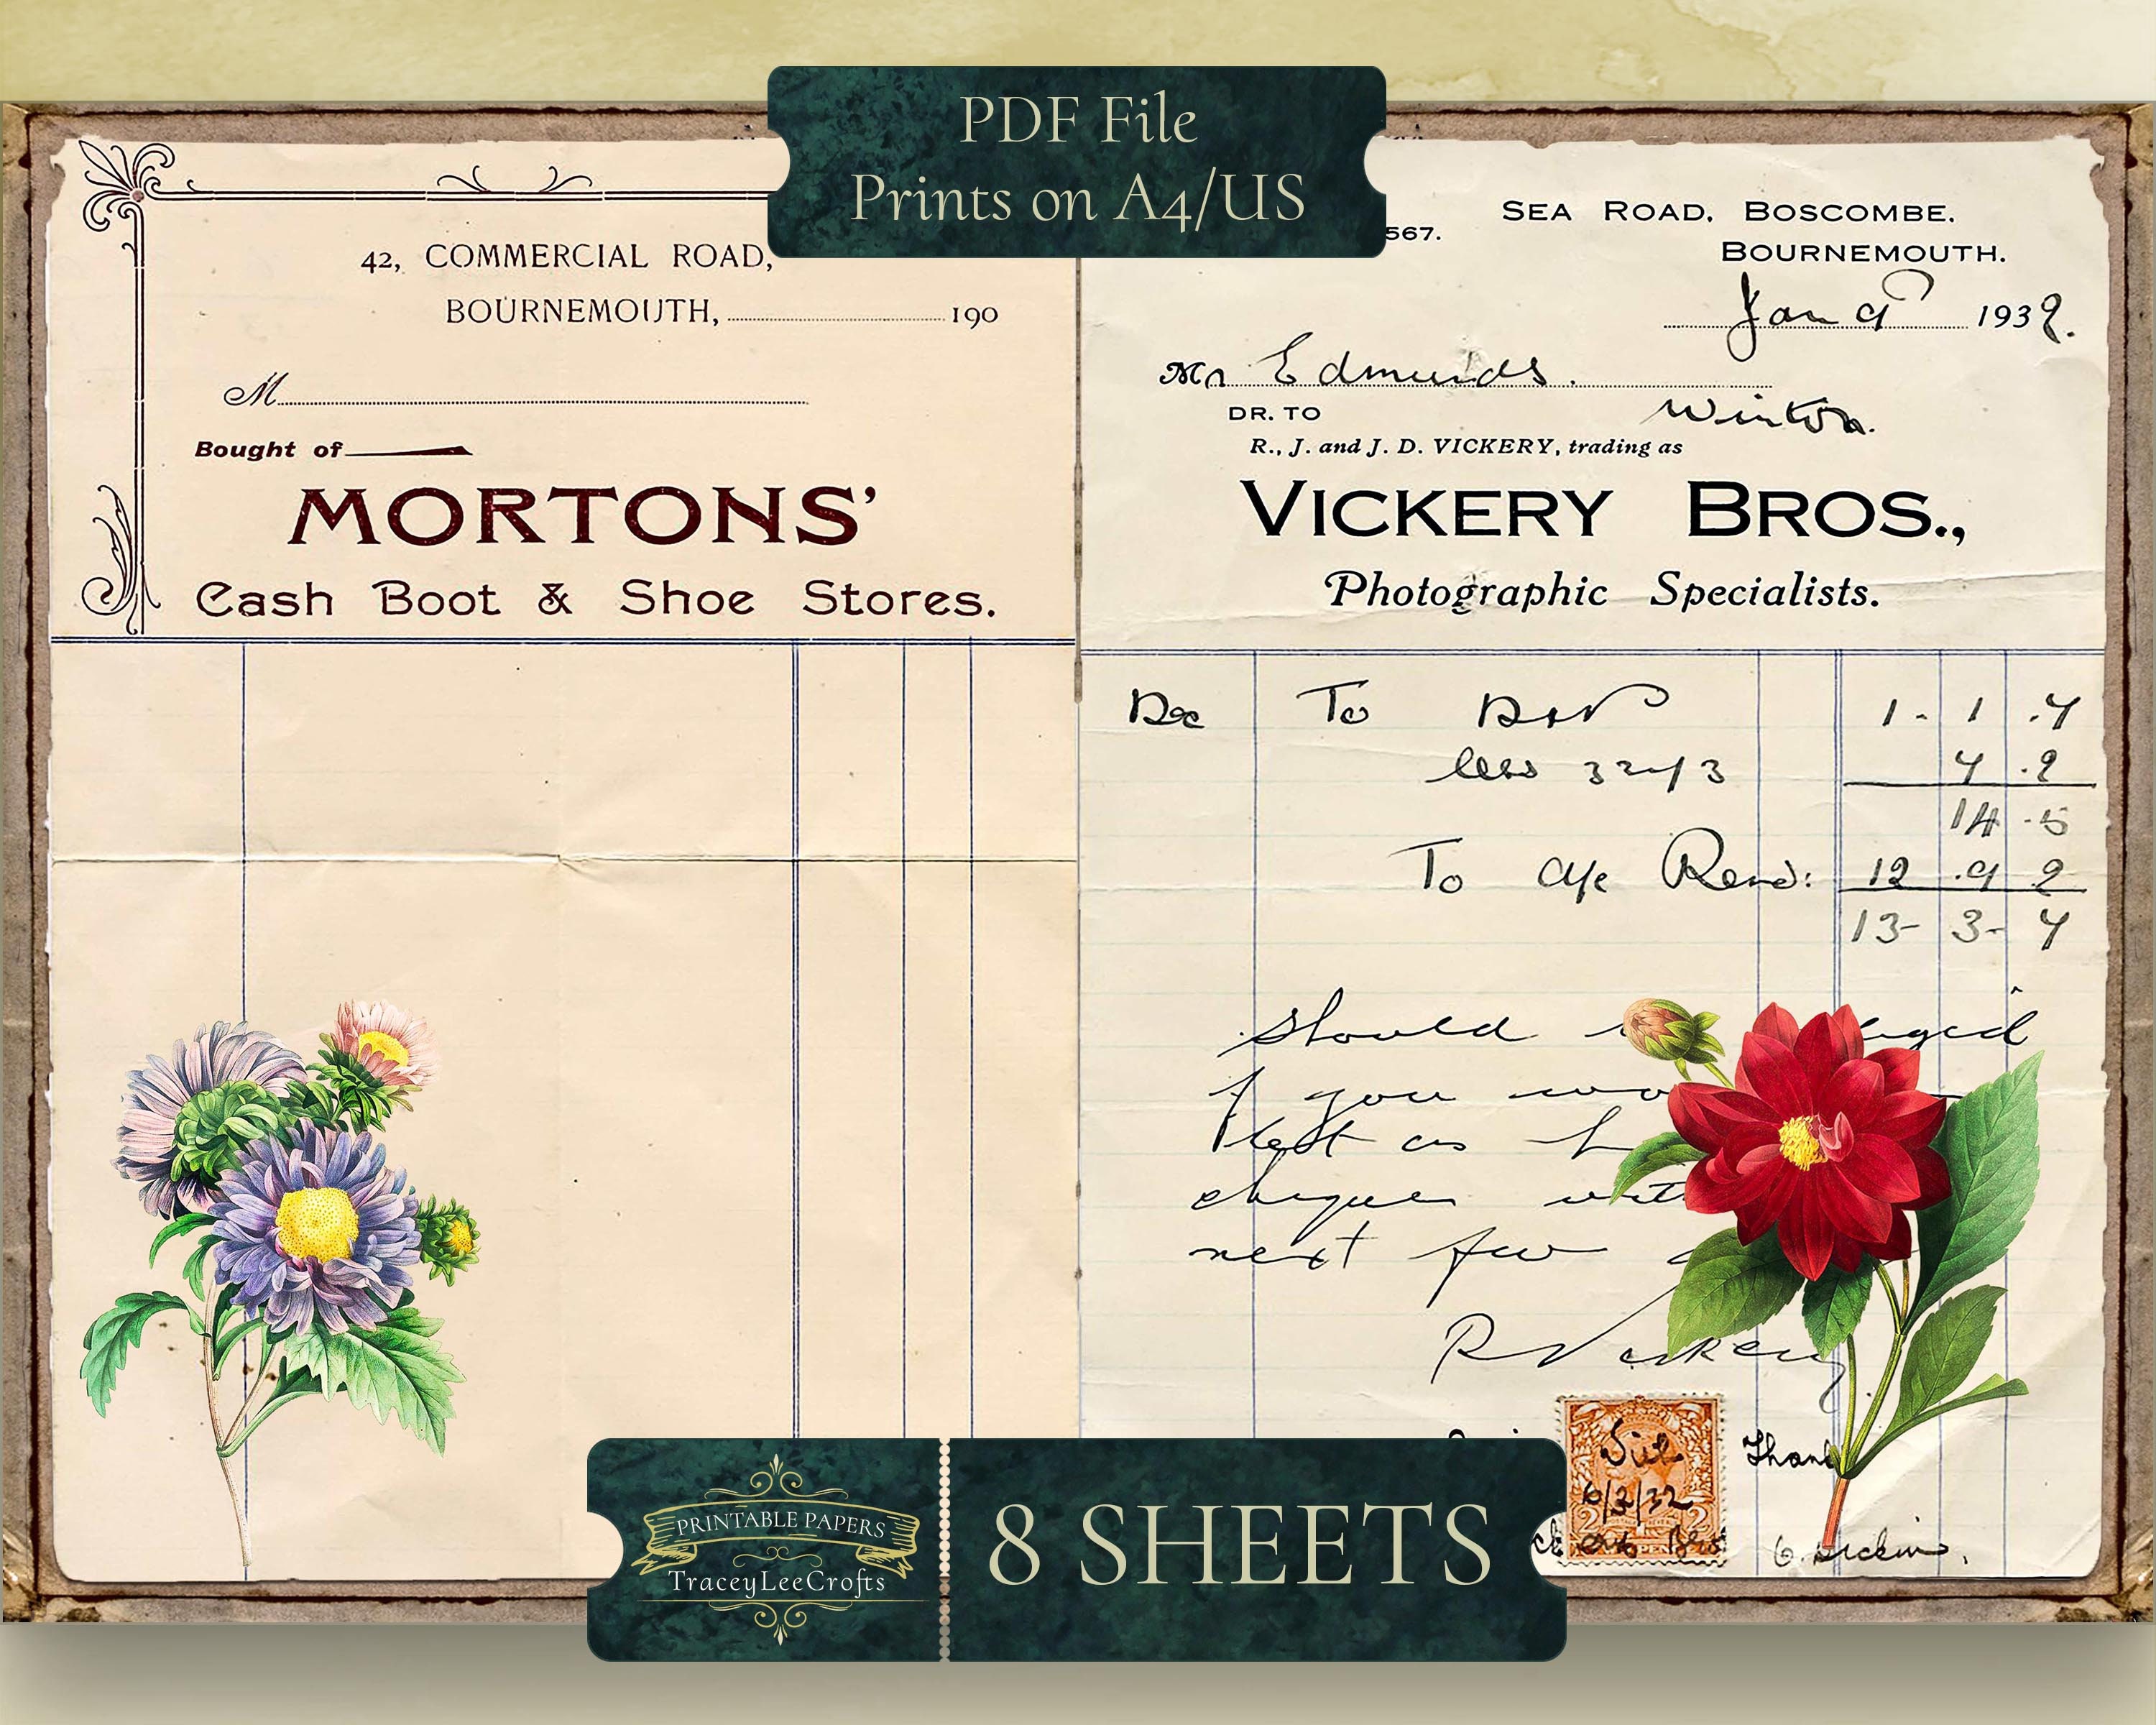 PDF File
Prints on A4/US
42, COMMERCIAL ROAD,
BOURNEMOUTH, 190
M
Bought of
MORTONS'
Cash Boot & Shoe Stores.
567.
SEA ROAD, BOSCOMBE,
BOURNEMOUTH.
Jan 9 1932.
Mr Edmunds.
Winton.
DR. TO
R., J. and J. D. VICKERY, trading as
VICKERY BROS.,
Photographic Specialists.
Dec To D+P 1 - 1 . 4
less 33 1/3
14 . 5
To a/c Rend: 12 . 9
13 - 3 - 4
should
if you
let us
cheque
next few
R Vickery
6/2/32
PRINTABLE PAPERS
TraceyLeeCrofts
8 SHEETS